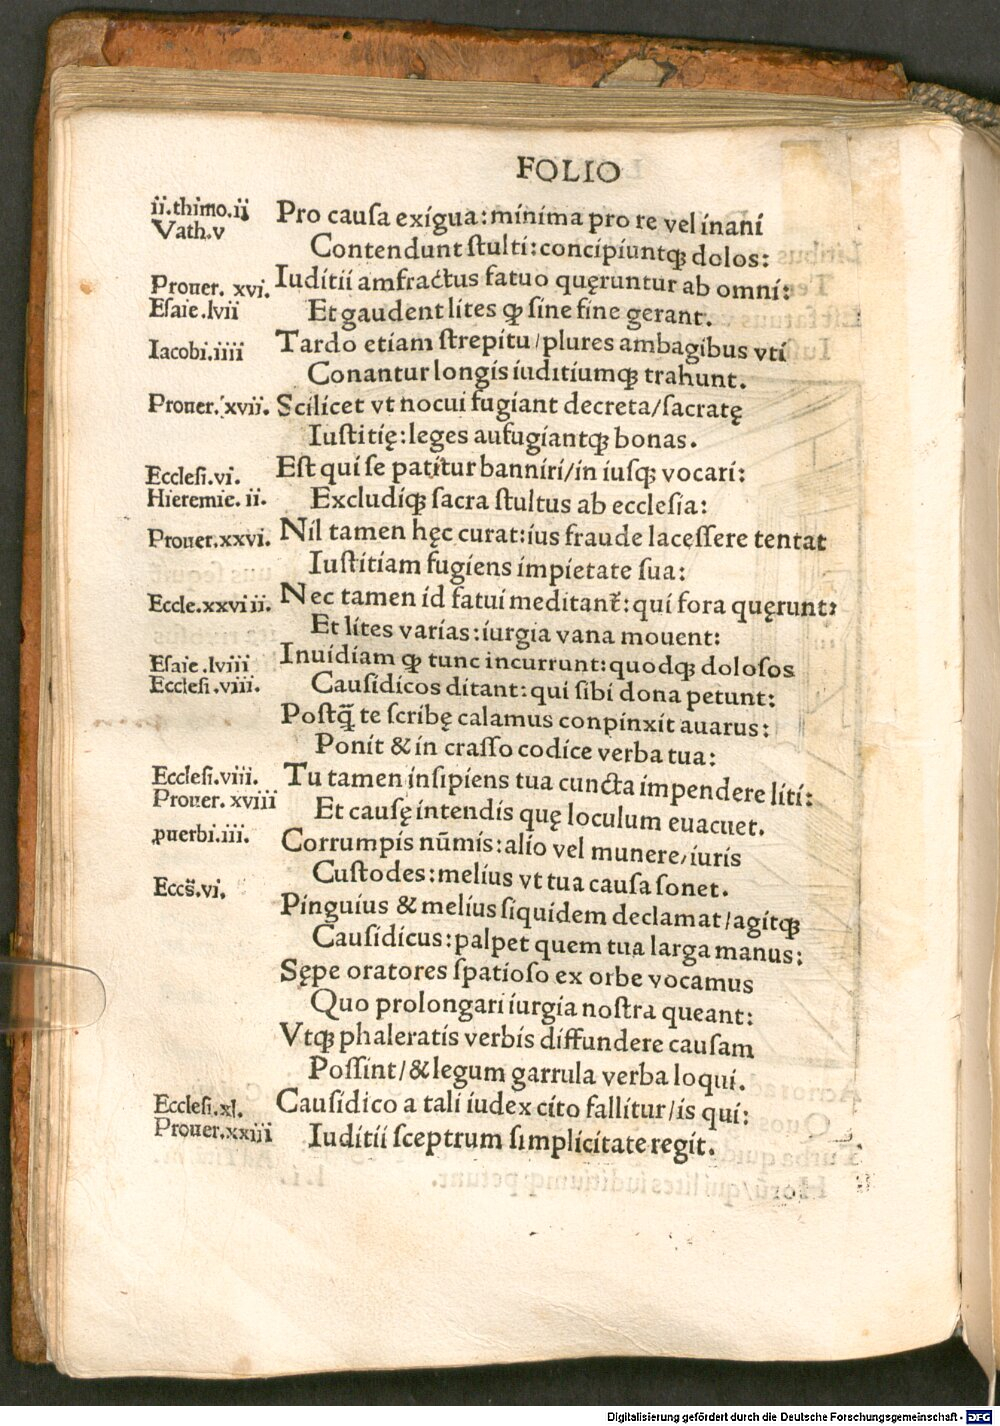 FOLIO
ii.thimo.ii Pro cauſa exigua: minima pro re vel inani
Vath.v
Contendunt ſtulti: concipiuntqꝫ dolos:
Prouer. xvi. Iuditii amfractus fatuo quęruntur ab omni:
Eſaie.lvii Et gaudent lites ꝙ ſine fine gerant.
Iacobi.iiii Tardo etiam ſtrepitu/plures ambagibus vti
Conantur longis iuditiumqꝫ trahunt.
Prouer.xvii. Scilicet vt nocui fugiant decreta/ſacratę
Iuſtitię: leges aufugiantqꝫ bonas.
Eccleſi.vi. Eſt qui ſe patitur banniri/in iuſqꝫ vocari:
Hieremie. ii. Excludiqꝫ ſacra ſtultus ab eccleſia:
Prouer.xxvi. Nil tamen hęc curat: ius fraude laceſſere tentat
Iuſtitiam fugiens impietate ſua:
Eccle.xxviii. Nec tamen id fatui meditant᷑: qui fora quęrunt:
Et lites varias: iurgia vana mouent:
Eſaie.lviii Inuidiam ꝙ tunc incurrunt: quodqꝫ doloſos
Eccleſi.viii. Cauſidicos ditant: qui ſibi dona petunt:
Poſtq̃ te ſcribę calamus conpinxit auarus:
Ponit & in craſſo codice verba tua:
Eccleſi.viii. Tu tamen inſipiens tua cuncta impendere liti:
Prouer. xviii Et cauſę intendis quę loculum euacuet.
ꝓuerbi.iii. Corrumpis nūmis: alio vel munere/iuris
Cuſtodes: melius vt tua cauſa ſonet.
Eccs̃.vi. Pinguius & melius ſiquidem declamat/agitqꝫ
Cauſidicus: palpet quem tua larga manus:
Sępe oratores ſpatioſo ex orbe vocamus
Quo prolongari iurgia noſtra queant:
Vtqꝫ phaleratis verbis diffundere cauſam
Poſſint/& legum garrula verba loqui.
Eccleſi.xl. Cauſidico a tali iudex cito fallitur/is qui:
Prouer.xxiii Iuditii ſceptrum ſimplicitate regit.
Digitalisierung gefördert durch die Deutsche Forschungsgemeinschaft - DFG